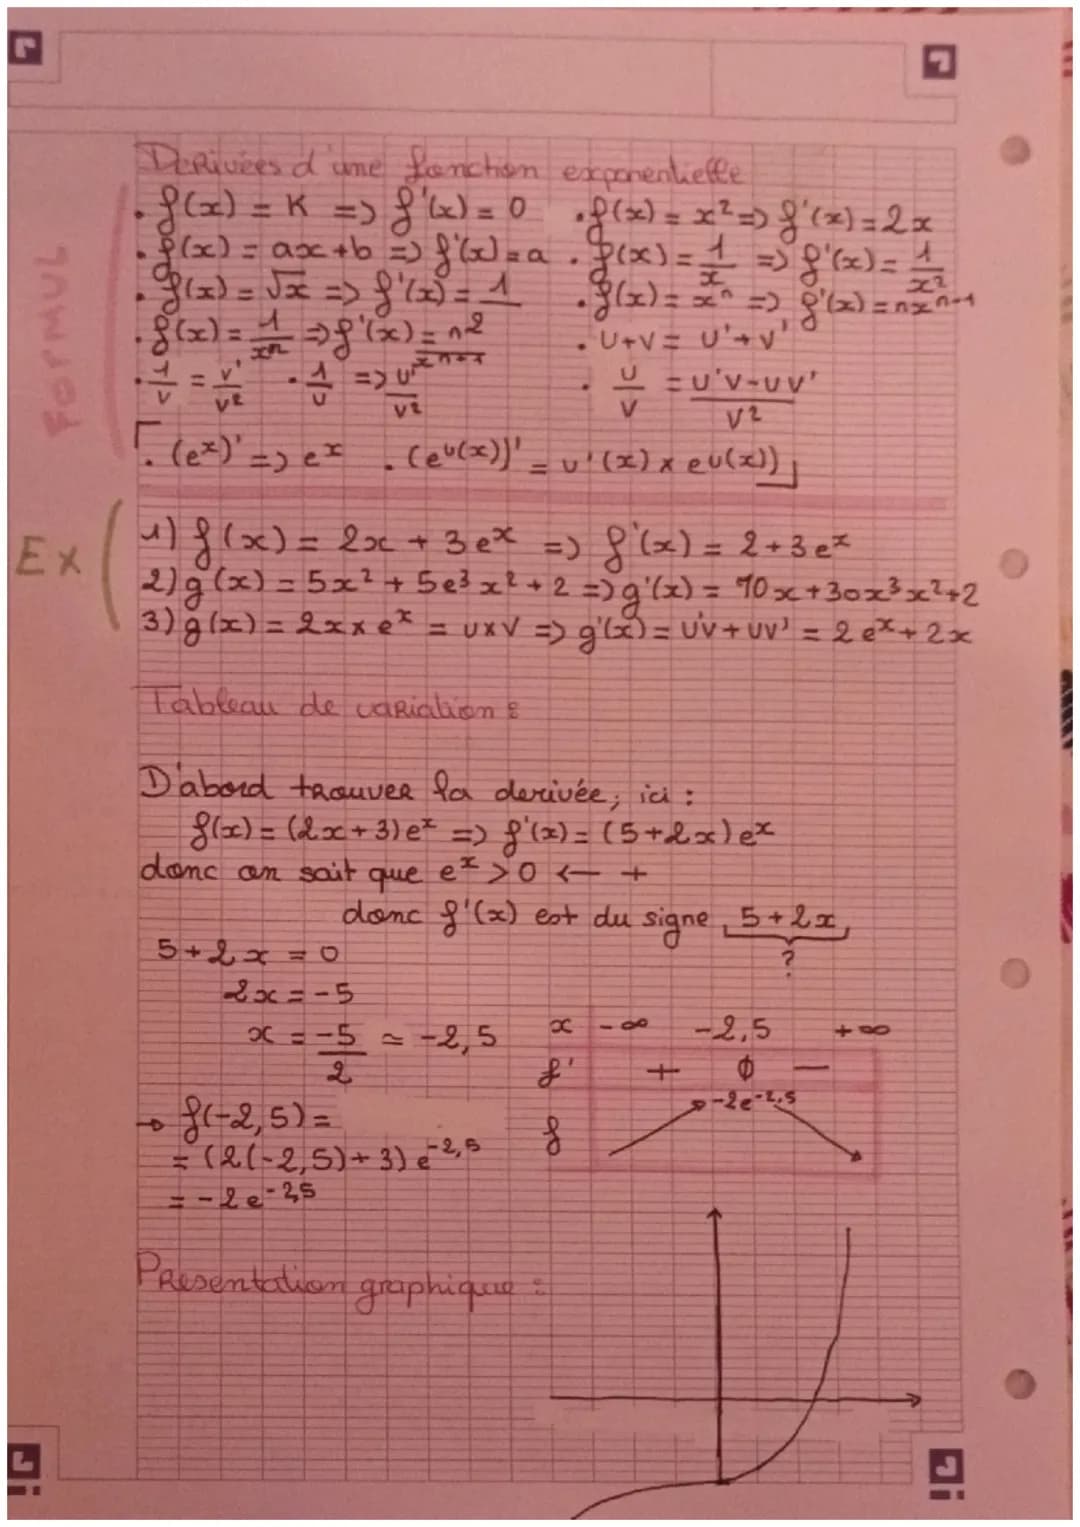 Dérivées d'une fonction exponentielle
FORMUL
. f(x) = K => f'(x) = 0 . f(x) = x² => f'(x) = 2x
. f(x) = ax+b => f'(x) = a . f(x) = 1/x => f'(x) = 1/x²
. f(x) = √x => f'(x) = 1 . f(x) = xⁿ => f'(x) = nxⁿ⁻¹
. f(x) = 1/xⁿ => f'(x) = n2/xⁿ⁺¹ . U+V = U'+V'
. 1/V = V'/V² . 1/U => U'/V² . U/V = U'V-UV'/V²
. (eˣ)' => eˣ . (eU(x))' = U'(x) x eU(x))
Ex
1) f(x) = 2x + 3eˣ => f'(x) = 2+3eˣ
2) g(x) = 5x² + 5e³x²+2 => g'(x) = 10x+30x³x²+2
3) g(x) = 2x x eˣ = UxV => g'(x) = U'V+UV' = 2eˣ+2x
Tableau de variation :
D'abord trouver la derivée, ici :
f(x) = (2x+3)eˣ => f'(x) = (5+2x)eˣ
donc on sait que eˣ > 0 ← +
donc f'(x) est du signe 5+2x
?
5+2x = 0
2x = -5
x = -5/2 ≃ -2,5
x -∞ -2,5 +∞
f' + 0 -
f -2e⁻²,⁵
→ f(-2,5) =
= (2(-2,5)+3) e⁻²,⁵
= -2e⁻²,⁵
Présentation graphique :